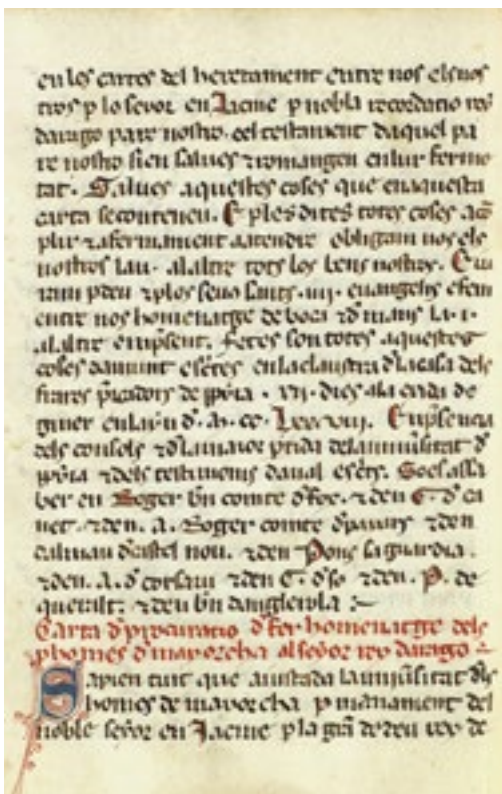 en les cartes del heretament entre nos els nos
tres p lo senor en Jacme p nobla recordatio rey
darago pare nostro. cel testament daquel pa
re nostro sien salues ⁊ romangen en lur ferme
tat. Salues aquestes coses que en aquesta
carta se contenen. E ples dites totes coses
plir ⁊ afermament atendre obligam nos els
nostres lau. alaltre tots los bens nostres. E iu
ram p deu ⁊ plos seus sants .iiii. euangelis e fem
entre nos homenatge de boca ⁊ d mans la .i.
alaltre en p̄sent. fetes son totes aquestes
coses damunt escrites en la claustra d la casa dels
frares p̄icadors de .vii. dies ala exida de
giner en lany d. m. cc. Lxxviii. E en p̄sencia
dels consols ⁊ d la maior p̄tida dela uniũsitat d
⁊ dels testimonis daual escrits. So es assa
ber en Roger bn̄ comte d foc. ⁊ den G. d ca
net. ⁊ den. A. Roger comte d payars ⁊ den
dalmau d castel nou. ⁊ den Pons saguardia.
⁊ den. A. d corsaui ⁊ den G. d so ⁊ den. P. de
queralt. ⁊ den bn̄ danglerola
Carta d procuratio d fer homenatge dels
phomes d mayorcha al senor rey darago
Sapien tuit que aiustada la uniũsitat dels
homes de mayorcha p manament del
noble senor en Jacme p la gr̄a de deu rey de